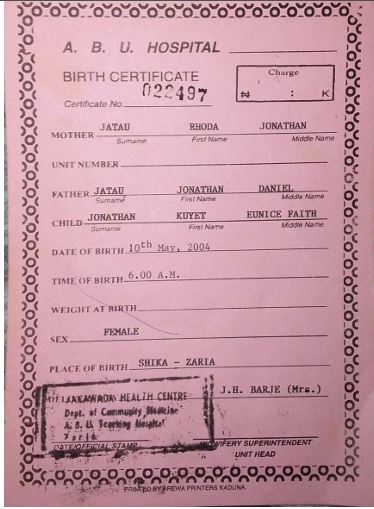 A. B. U. HOSPITAL
BIRTH CERTIFICATE
Charge
₦ : K
Certificate No 022497
MOTHER JATAU RHODA JONATHAN
Surname First Name Middle Name
UNIT NUMBER
FATHER JATAU JONATHAN DANIEL
Surname First Name Middle Name
CHILD JONATHAN KUYET EUNICE FAITH
Surname First Name Middle Name
DATE OF BIRTH 10th May, 2004
TIME OF BIRTH 6.00 A.M.
WEIGHT AT BIRTH
SEX FEMALE
PLACE OF BIRTH SHIKA - ZARIA
HEALTH CENTRE
J.H. BARJE (Mrs.)
Dept. of Community Medicine
A. B. U. Teaching Hospital
Zaria
DATE/OFFICIAL STAMP MIDWIFERY SUPERINTENDENT
UNIT HEAD
PRINTED BY AREWA PRINTERS KADUNA